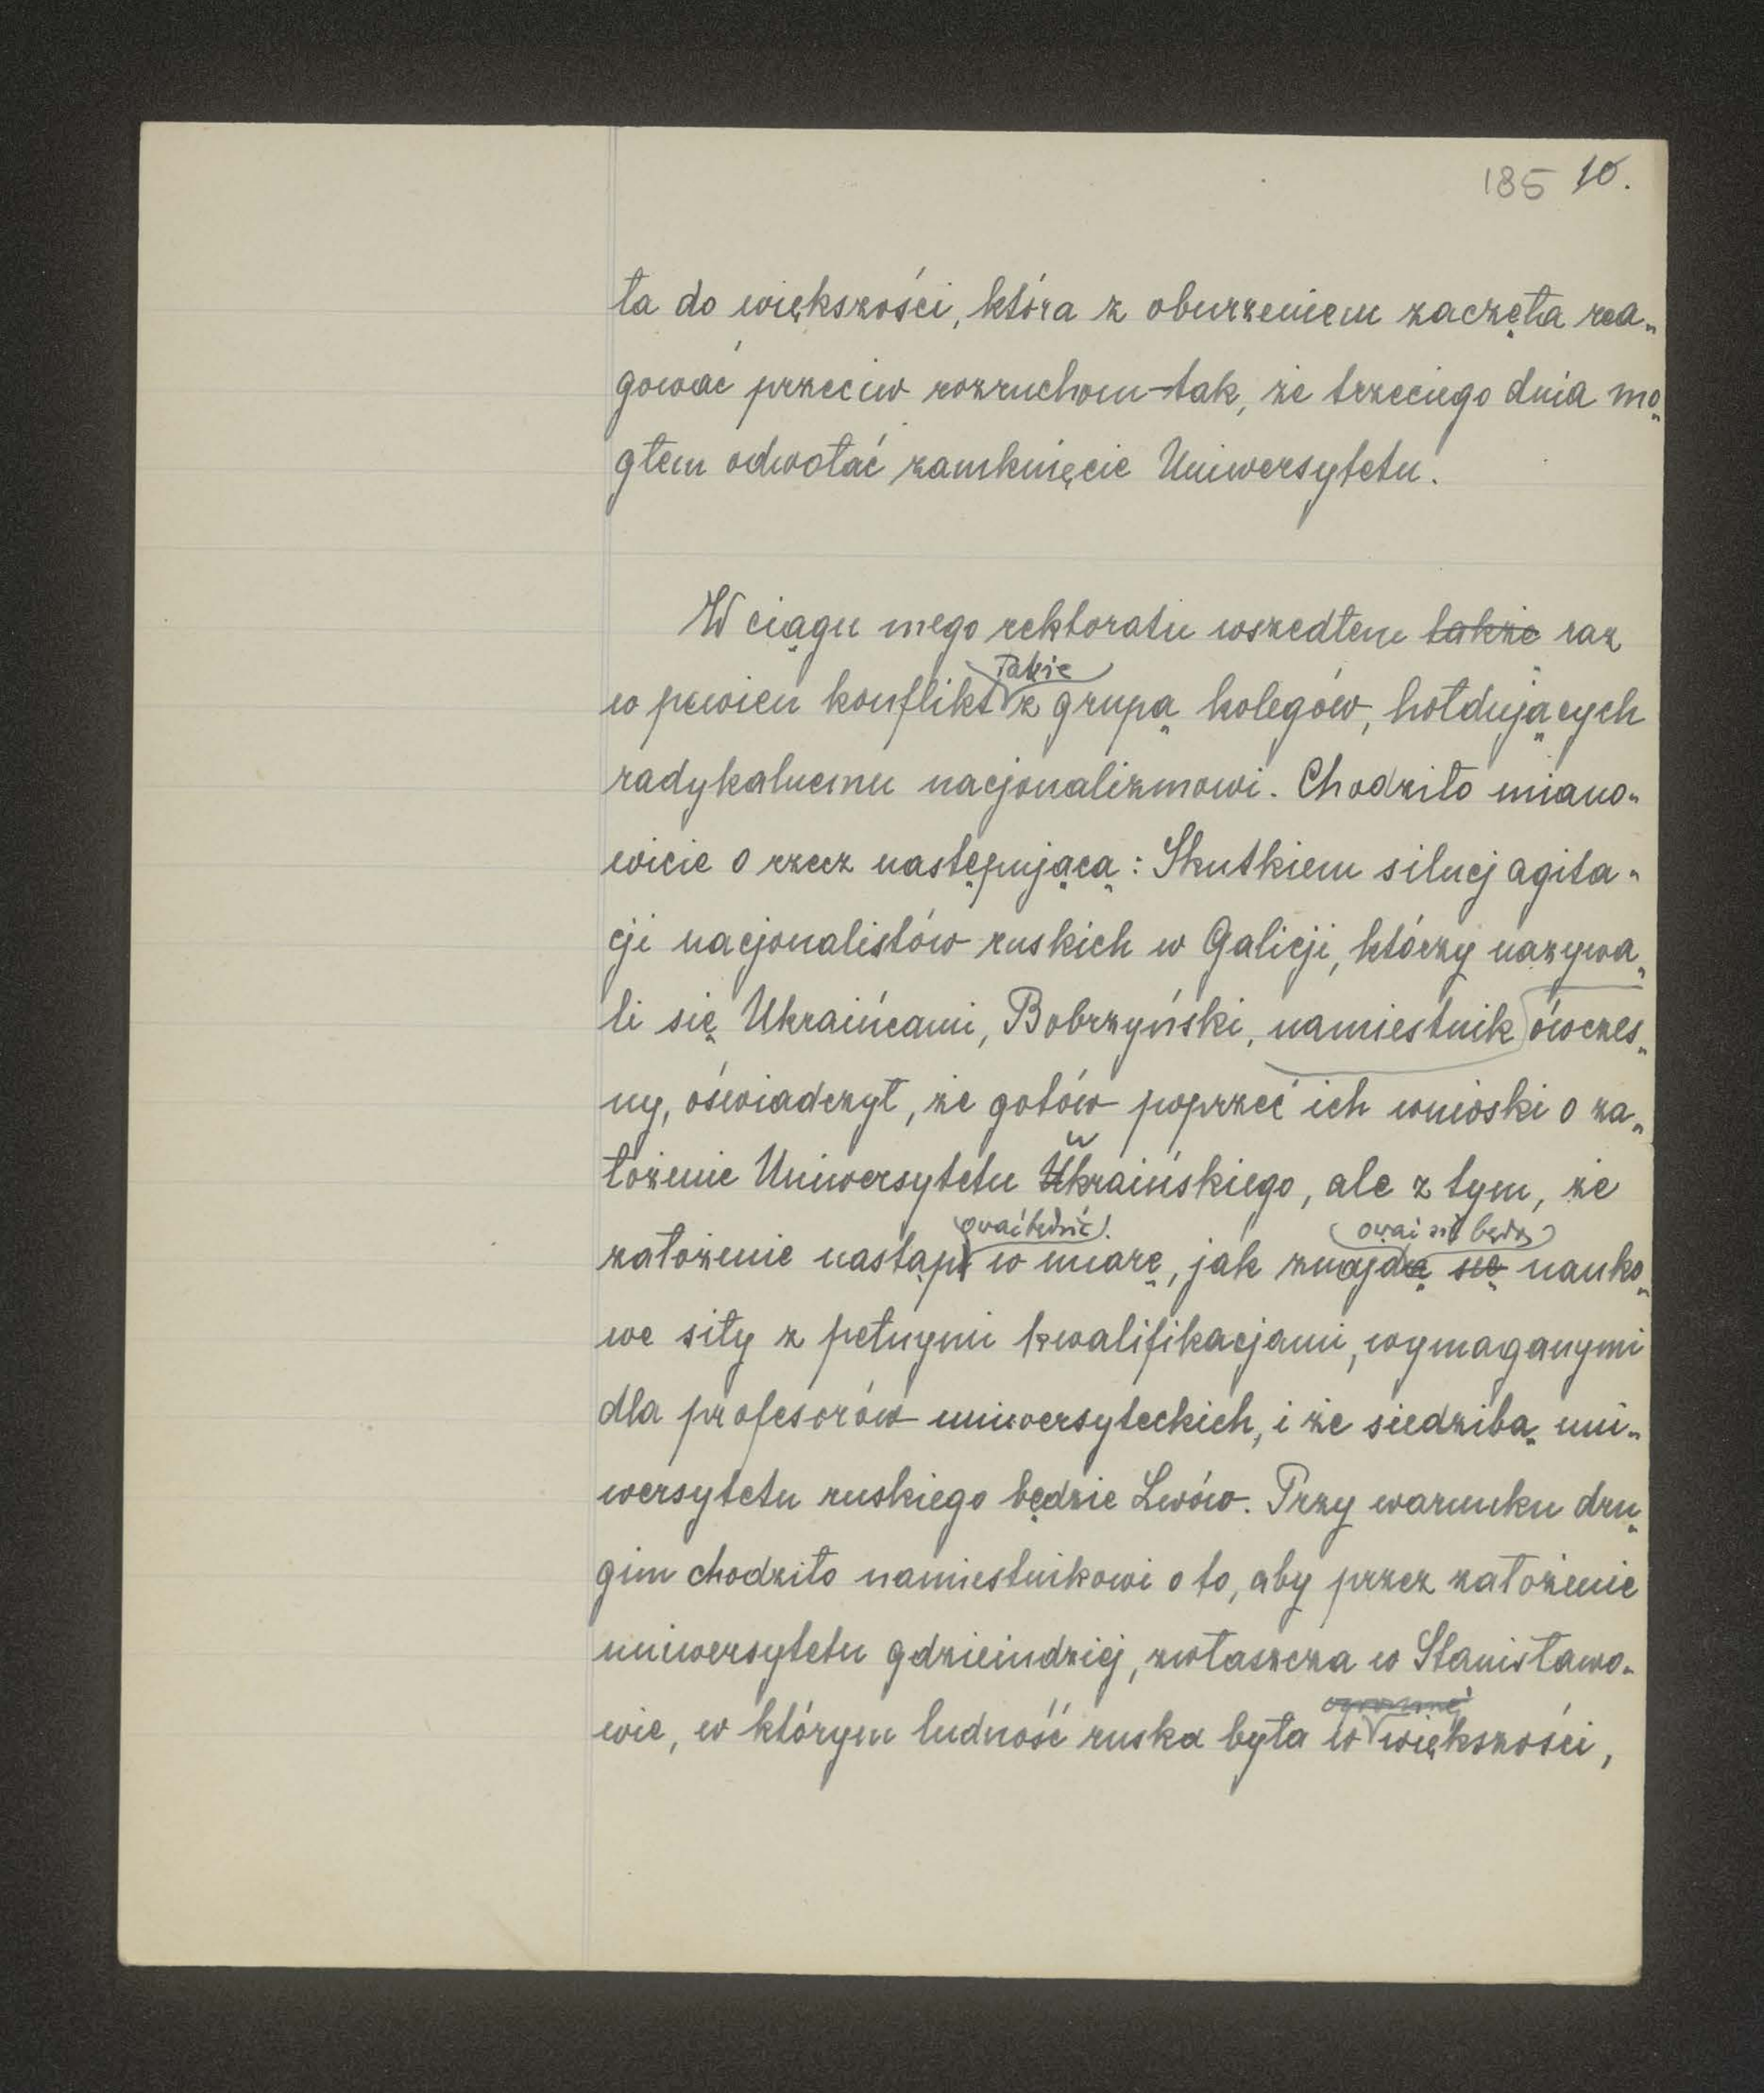 185 10.
ła do większości, która z oburzeniem zaczęła rea„
gować przeciw rozruchom tak, że trzeciego dnia mo„
głem odwołać zamknięcie Uniwersytetu.
W ciągu mego rektoratu wszedłem także raz
także
w pewien konflikt z grupą kolegów, hołdujących
radykalnemu nacjonalizmowi. Chodziło miano„
wicie o rzecz następującą: Skutkiem silnej agita„
cji nacjonalistów ruskich w Galicji, którzy nazywa„
li się Ukraińcami, Bobrzyński, namiestnik ówczes„
ny, oświadczył, że gotów poprzeć ich wnioski o za„
łożenie Uniwersytetu Ukraińskiego, ale z tym, że
założenie nastąpi w miarę, jak znajdą się nauko„
we siły z pełnymi kwalifikacjami, wymaganymi
dla profesorów uniwersyteckich, i że siedzibą uni„
wersytetu ruskiego będzie Lwów. Przy warunku dru„
gim chodziło namiestnikowi o to, aby przez założenie
uniwersytetu gdzieindziej, zwłaszcza w Stanisławo„
ogromnej
wie, w którym ludność ruska była w większości,